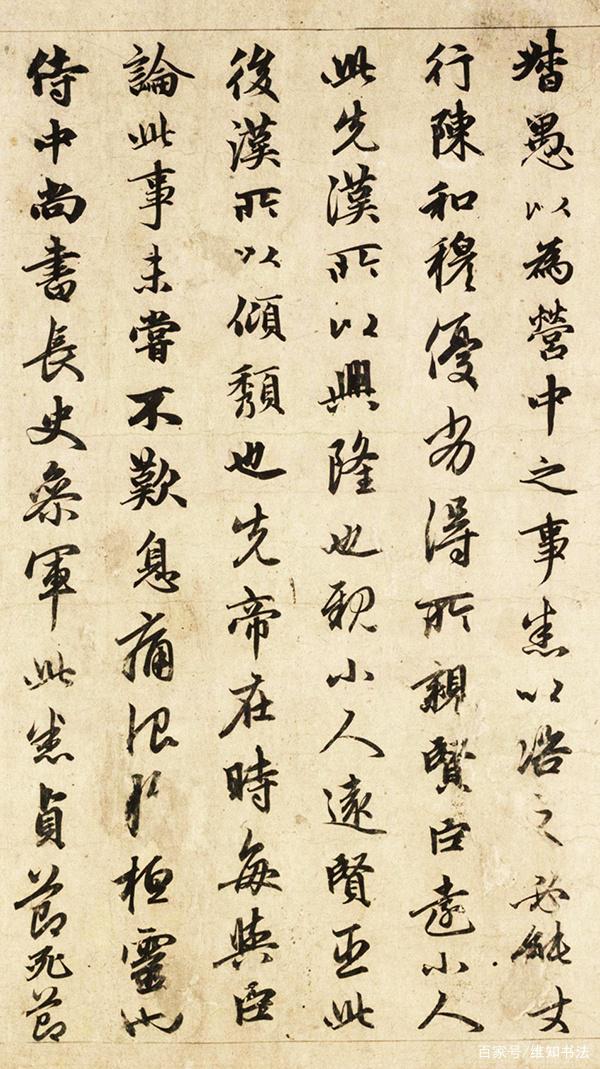 督愚以為營中之事悉以咨之必能使
行陳和穆優劣得所親賢臣遠小人
此先漢所以興隆也親小人遠賢臣此
後漢所以傾頹也先帝在時每與臣
論此事未嘗不歎息痛恨於桓靈也
侍中尚書長史參軍此悉貞節死節
百家号/维知书法